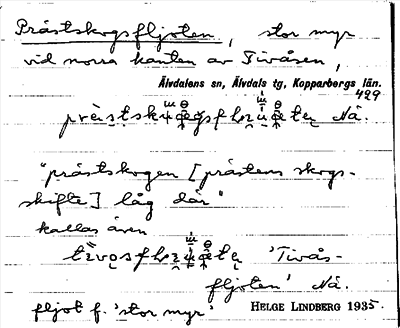 Prästskogsfljoten, stor myr
vid norra kanten av Tivåsen,
Älvdalens sn, Älvdals tg, Kopparbergs län.
429
Nå.
"prästskogen [prästens skogs-
skifte] låg där"
kallas även
'Tivås-
fljoten' Nå.
fljot f. 'stor myr'
HELGE LINDBERG 1935.